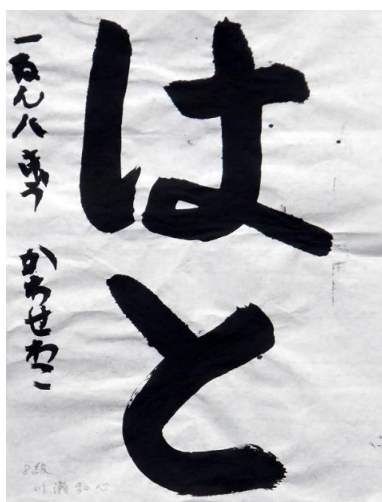 はと
一ねん八きゅう
かわせわこ
8級
川瀬和心